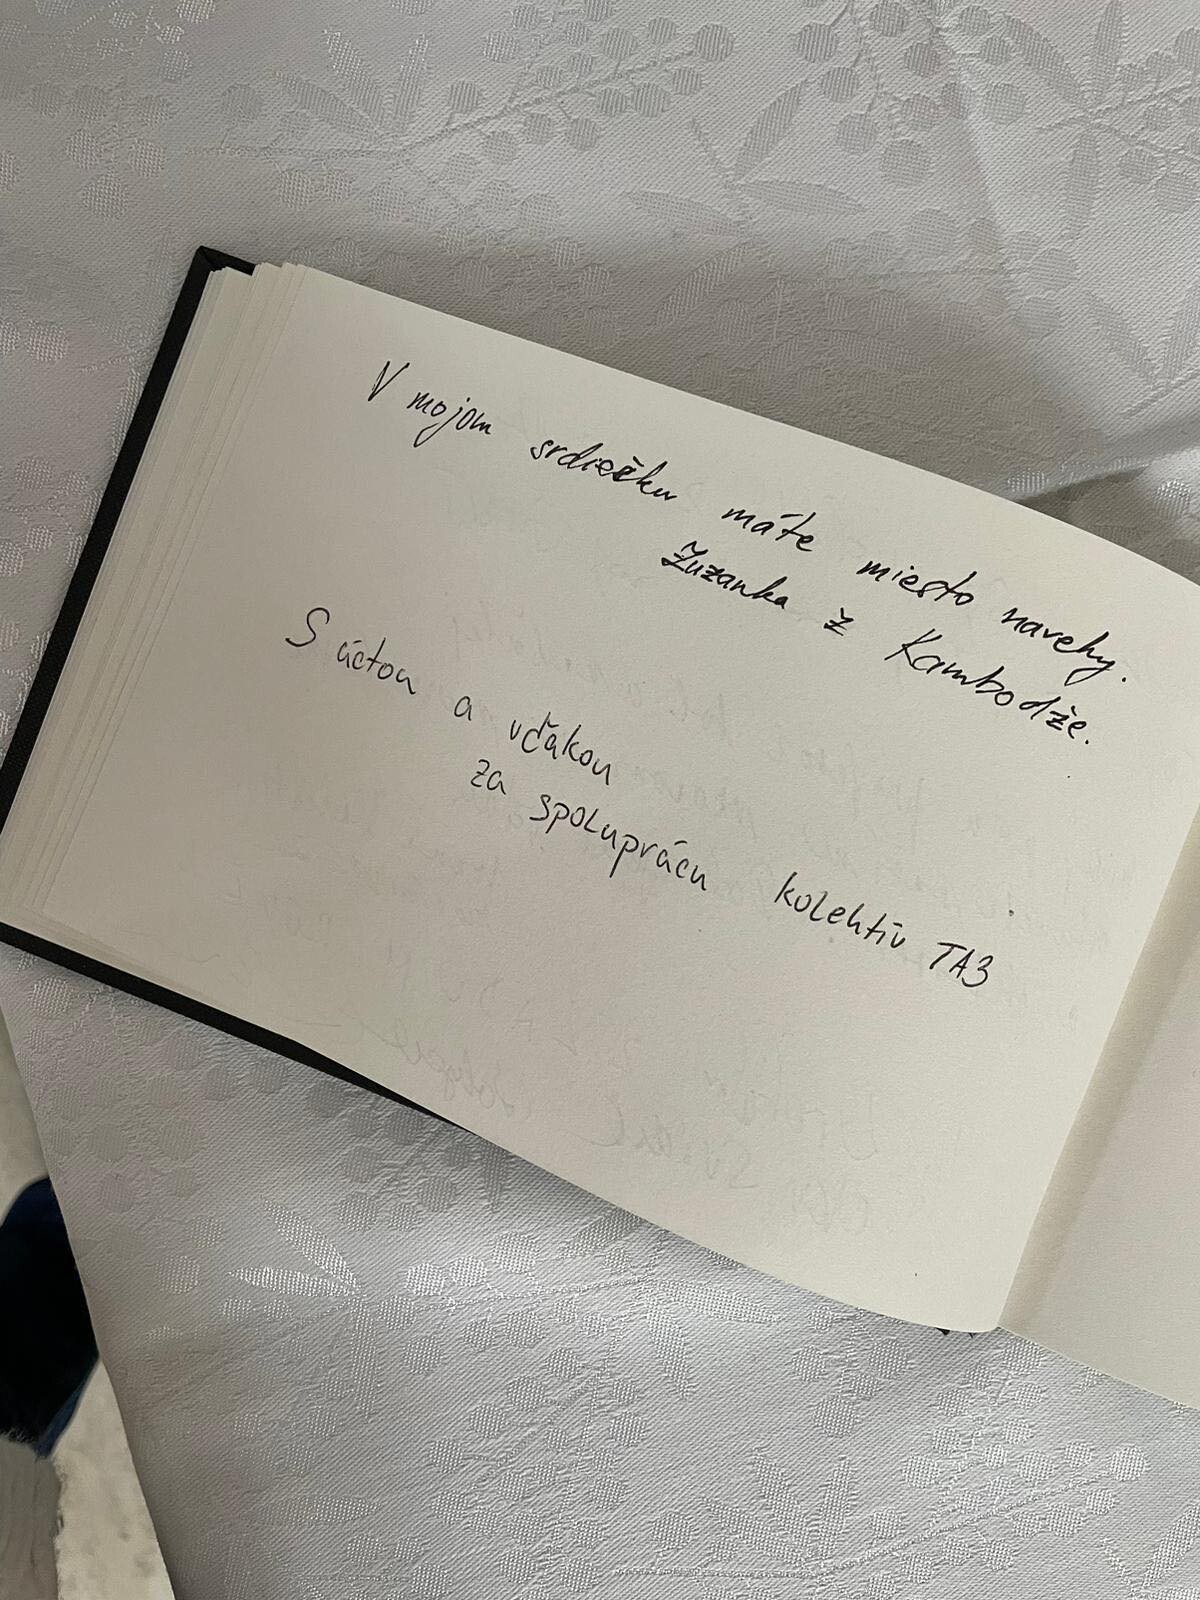 V mojom srdiečku máte miesto naveky.
Zuzanka z Kambodže.
S úctou a vďakou
za spoluprácu kolektív TA3